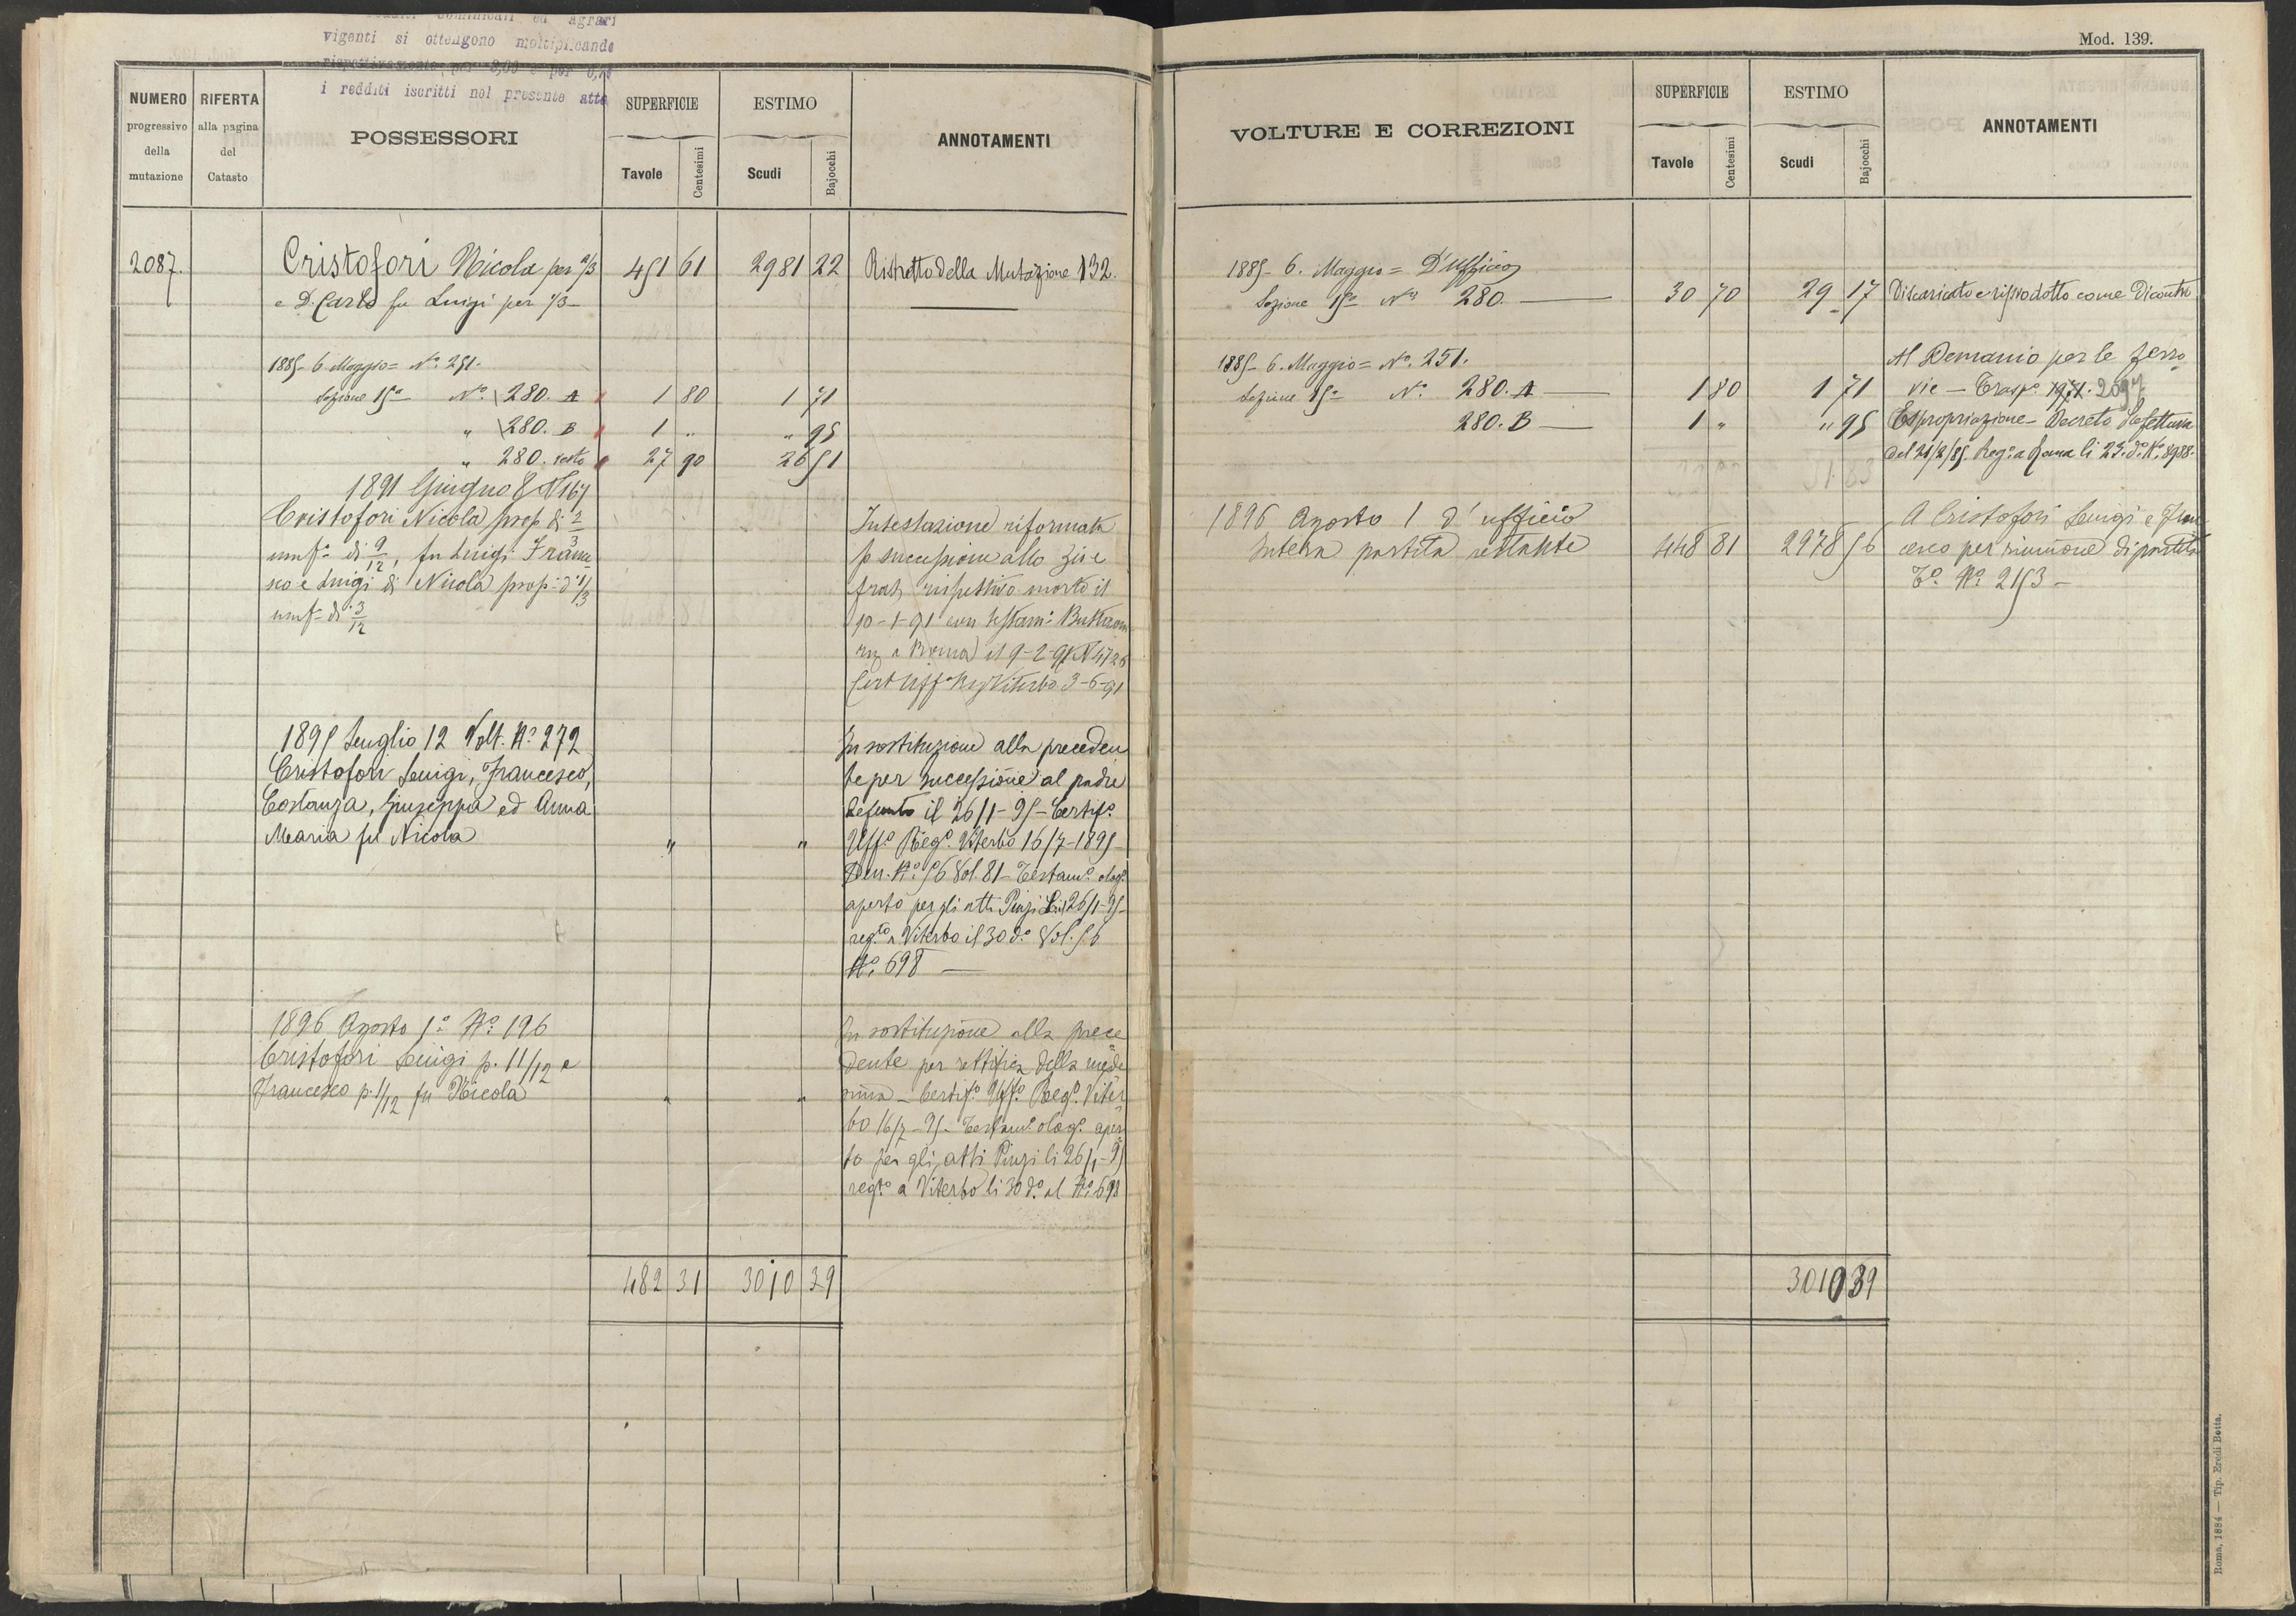 redditi dominicali ed agrari
vigenti si ottengono moltiplicando
rispettivamente per
i redditi iscritti nel presente atto
NUMERO progressivo della mutazione
RIFERTA alla pagina del Catasto
POSSESSORI
SUPERFICIE
Tavole Centesimi
ESTIMO
Scudi Bajocchi
ANNOTAMENTI
2087. Cristofori Nicola per 2/3 451 61 2981 22 Ristretto della Mutazione 132.
e D. Carlo fu Luigi per 1/3
1885 - 6 Maggio = N.º 251.
Sezione 15ª N.º 280. A 1 80 1 71
" 280. B 1 " " 95
" 280. resto 27 90 26 51
1891 Giugno 8 N 167
Cristofori Nicola prop di 2/3
usufº di 9/12, fu Luigi France
sco e Luigi di Nicola prop: d' 1/3
usufº di 3/12
Intestazione riformata
p successione allo zio e
frat. rispettivo morto il
10-1-91 con testam:
a Roma il 9-2-91 N 4726
Cert Uff Reg Viterbo 3-6-91
1895 Luglio 12 Volt. Nº 272
Cristofori Luigi, Francesco,
Costanza, Giuseppa ed Anna
Maria fu Nicola " "
In sostituzione alla preceden
te per successione al padre
defunto il 26/1-95 - Certifº.
Uffº Regº. Viterbo 16/7-1895 -
Den. Nº. 56 Vol. 81 - Testamº. olog.
aperto per gli atti Pinzi li 26/1-95 -
regtº a Viterbo il 30 dº. Vol. 56
Nº. 698 —
1896 Agosto 1º Nº 196
Cristofori Luigi p. 11/12 e
Francesco p. 1/12 fu Nicola " "
In sostituzione alla prece
dente per rettifica della mede
sima - Certifº. Uffº. Regº. Viter
bo 16/7-95 - Testamº. ologº. aper
to per gli atti Pinzi li 26/1-95
regtº a Viterbo li 30 dº. al Nº. 698
482 31 3010 39
Mod. 139.
VOLTURE E CORREZIONI
SUPERFICIE
Tavole Centesimi
ESTIMO
Scudi Bajocchi
ANNOTAMENTI
1885 - 6. Maggio = D'Ufficio
Sezione 15ª Nº 280. — 30 70 29 17 Discaricato e riprodotto come dicontro
1885 - 6. Maggio = Nº. 251.
Sezione 15ª Nº. 280. A — 1 80 1 71
280. B — 1 " " 95
Al Demanio per le ferro
vie - Traspº. 1971. 2097
Espropriazione - Decreto Prefettura
Reg.º a Roma li 23. dº. Nº. 8988.
1896 Agosto 1 d'ufficio
Intera partita restante 448 81 2978 56
A Cristofori Luigi e Fran
cesco per riunione di partita
Tº. Nº. 2153 -
3010 39
Roma, 1884 — Tip. Eredi Botta.